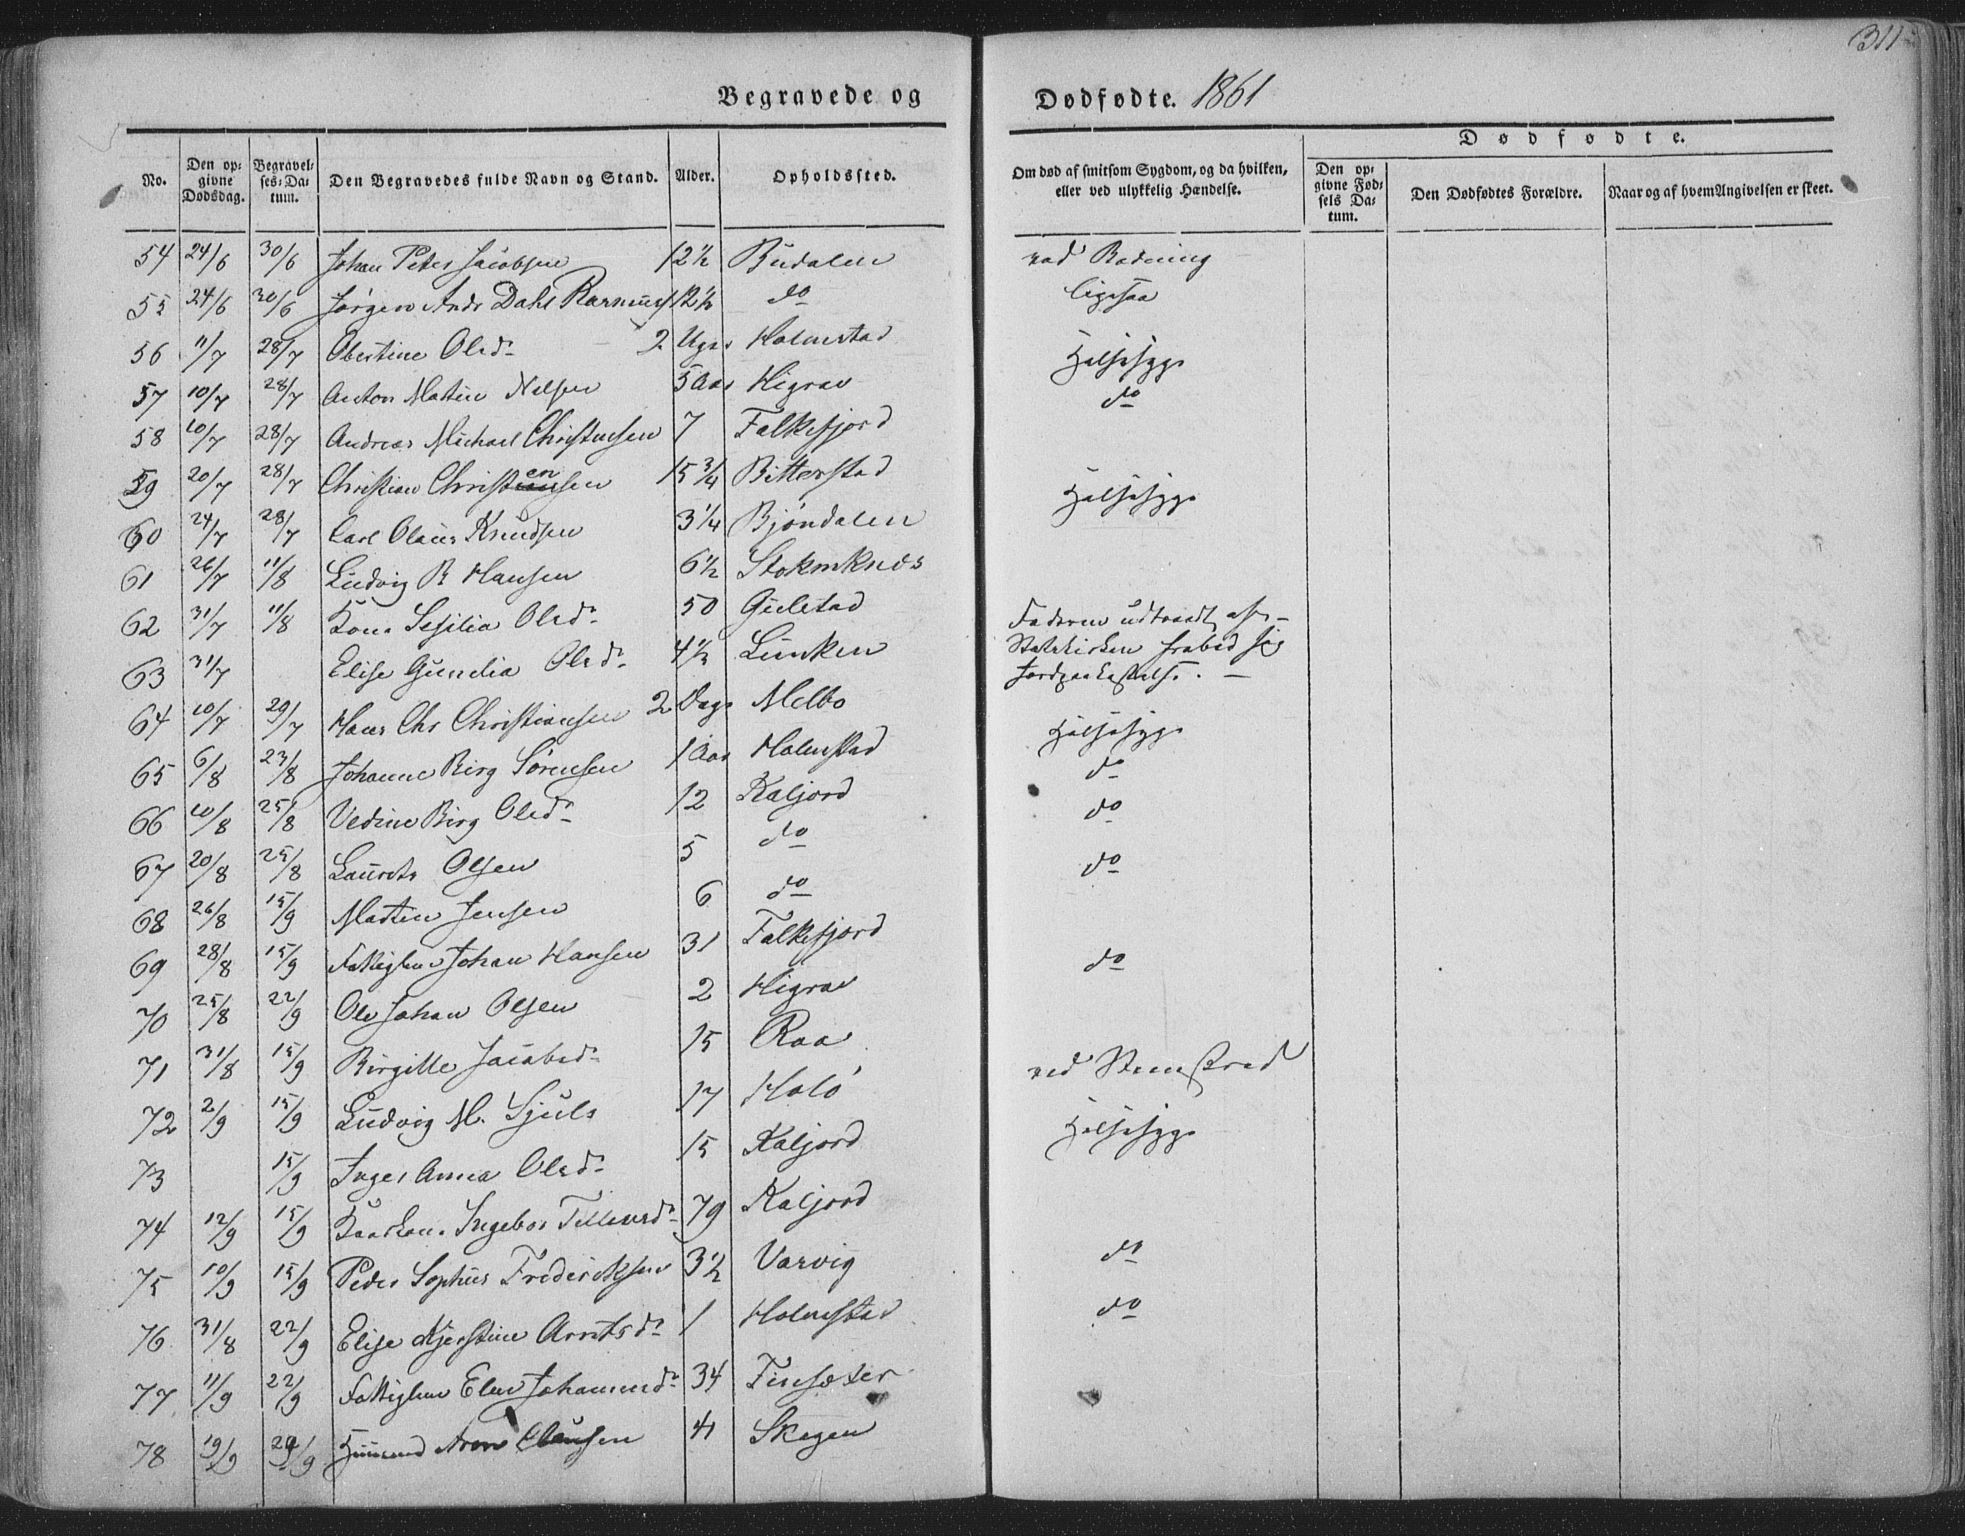 311
Begravede og Dødfødte. 1861
Dødfødte.
No. Den opgivne Dødsdag. Begravelses-Datum. Den Begravedes fulde Navn og Stand. Alder. Opholdssted. Om død af smitsom Sygdom, og da hvilken, eller ved ulykkelig Hændelse. Den opgivne Fødsels Datum. Den Dødfødtes Forældre. Naar og af hvem Angivelsen er skeet.
54 24/6 30/6 Johan Peter Jacobsen 12 1/2 Budalen ved Badning
55 24/6 30/6 Jørgen Andr Dahl Rasmus 12 1/2 do ligesaa
56 11/7 28/7 Obertine Olsd 2 Uger Holmstad Halssyge
57 10/7 28/7 Anton Martin Nelsen 5 Aar Higrav do
58 10/7 28/7 Andreas Michael Christensen 7 Falkefjord
59 20/7 28/7 Christian Christensen 15 3/4 Bitterstad Halssyge
60 24/7 28/7 Carl Olaus Knudsen 3 1/4 Bjøndalen
61 26/7 11/8 Ludvig R Hansen 6 1/2 Stokmknes
62 31/7 11/8 Kone Sesilia Olsd 50 Gulstad Faderen udtraadt af
63 31/7 Elise Gunelia Olsd 4 1/2 Lunken Statskirken frabad sig
Jordpaakastelse.
64 10/7 29/7 Hans Chr Christiansen 2 Dage Melbo Halssyge
65 6/8 23/8 Johanne Birg Sørensen 1 Aar Holmstad do
66 10/8 25/8 Vedine Birg Olsd 12 Kaljord do
67 20/8 25/8 Laurits Olsen 5 do do
68 26/8 15/9 Martin Jensen 6 do
69 28/8 15/9 Fattiglem Johan Hansen 31 Falkefjord do
70 25/8 22/9 Ole Johan Olsen 2 Higrav
71 31/8 15/9 Birgitte Jacobsd 15 Raa ved Steensked
72 2/9 15/9 Ludvig M. Sjuls 17 Halø Halssyge
73 15/9 Inger Anna Olsd 15 Kaljord
74 12/9 15/9 Kaarkone Ingebor Tellevsd 79 Kaljord
75 10/9 15/9 Peder Sophus Frederiksen 3 1/2 Varvig do
76 31/8 22/9 Elise Kjerstine Arntsd 1 Holmstad do
77 11/9 22/9 Fattiglem Elen Johannesd 34 Finsæter
78 19/9 29/9 Huusmd Aron Clausen 41 Skagen